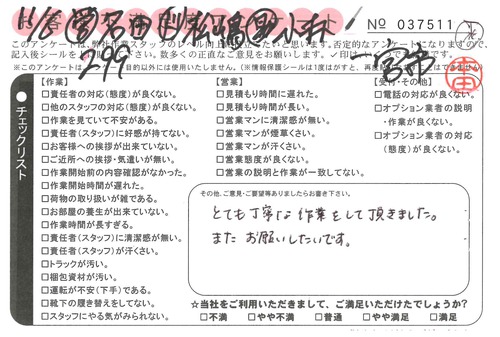 No 037511
このアンケートは、弊社作業スタッフのレベル向上に役立てたいと思います。否定的なアンケートになりますので、
記入後シールを
※このアンケートは、
目的以外には使用いたしません。
一宮市
299
チェックリスト
【作業】
□責任者の対応(態度)が良くない。
□他のスタッフの対応(態度)が良くない。
□作業を見ていて不安がある。
□責任者(スタッフ)に好感が持てない。
□お客様への挨拶が出来ていない。
□ご近所への挨拶・気遣いが無い。
□作業開始前の内容確認がなかった。
□作業開始時間が遅れた。
□荷物の取り扱いが雑である。
□お部屋の養生が出来ていない。
□作業時間が長すぎる。
□責任者(スタッフ)に清潔感が無い。
□責任者(スタッフ)が汗くさい。
□トラックが汚い。
□梱包資材が汚い。
□運転が不安(下手)である。
□靴下の履き替えをしてない。
□スタッフにやる気がみられない。
【営業】
□見積もり時間に遅れた。
□見積もり時間が長い。
□営業マンに清潔感が無い。
□営業マンが煙草くさい。
□営業マンが汗くさい。
□営業態度が良くない。
□営業の説明と作業が一致してない。
【受付・その他】
□電話の対応が良くない。
□オプション業者の説明
・作業が良くない。
□オプション業者の対応
(態度)が良くない。
その他、ご意見・ご要望等ありましたらお書き下さい。
とても丁寧な作業をして頂きました。
また お願いしたいです。
☆当社をご利用いただきまして、ご満足いただけたでしょうか?
□不満 □やや不満 □普通 □やや満足 □満足